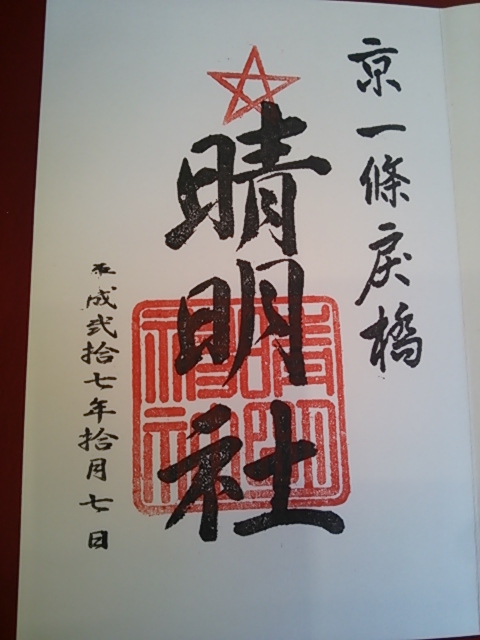 京一條戻橋
晴明社
平成弐拾七年拾月七日
晴明神社